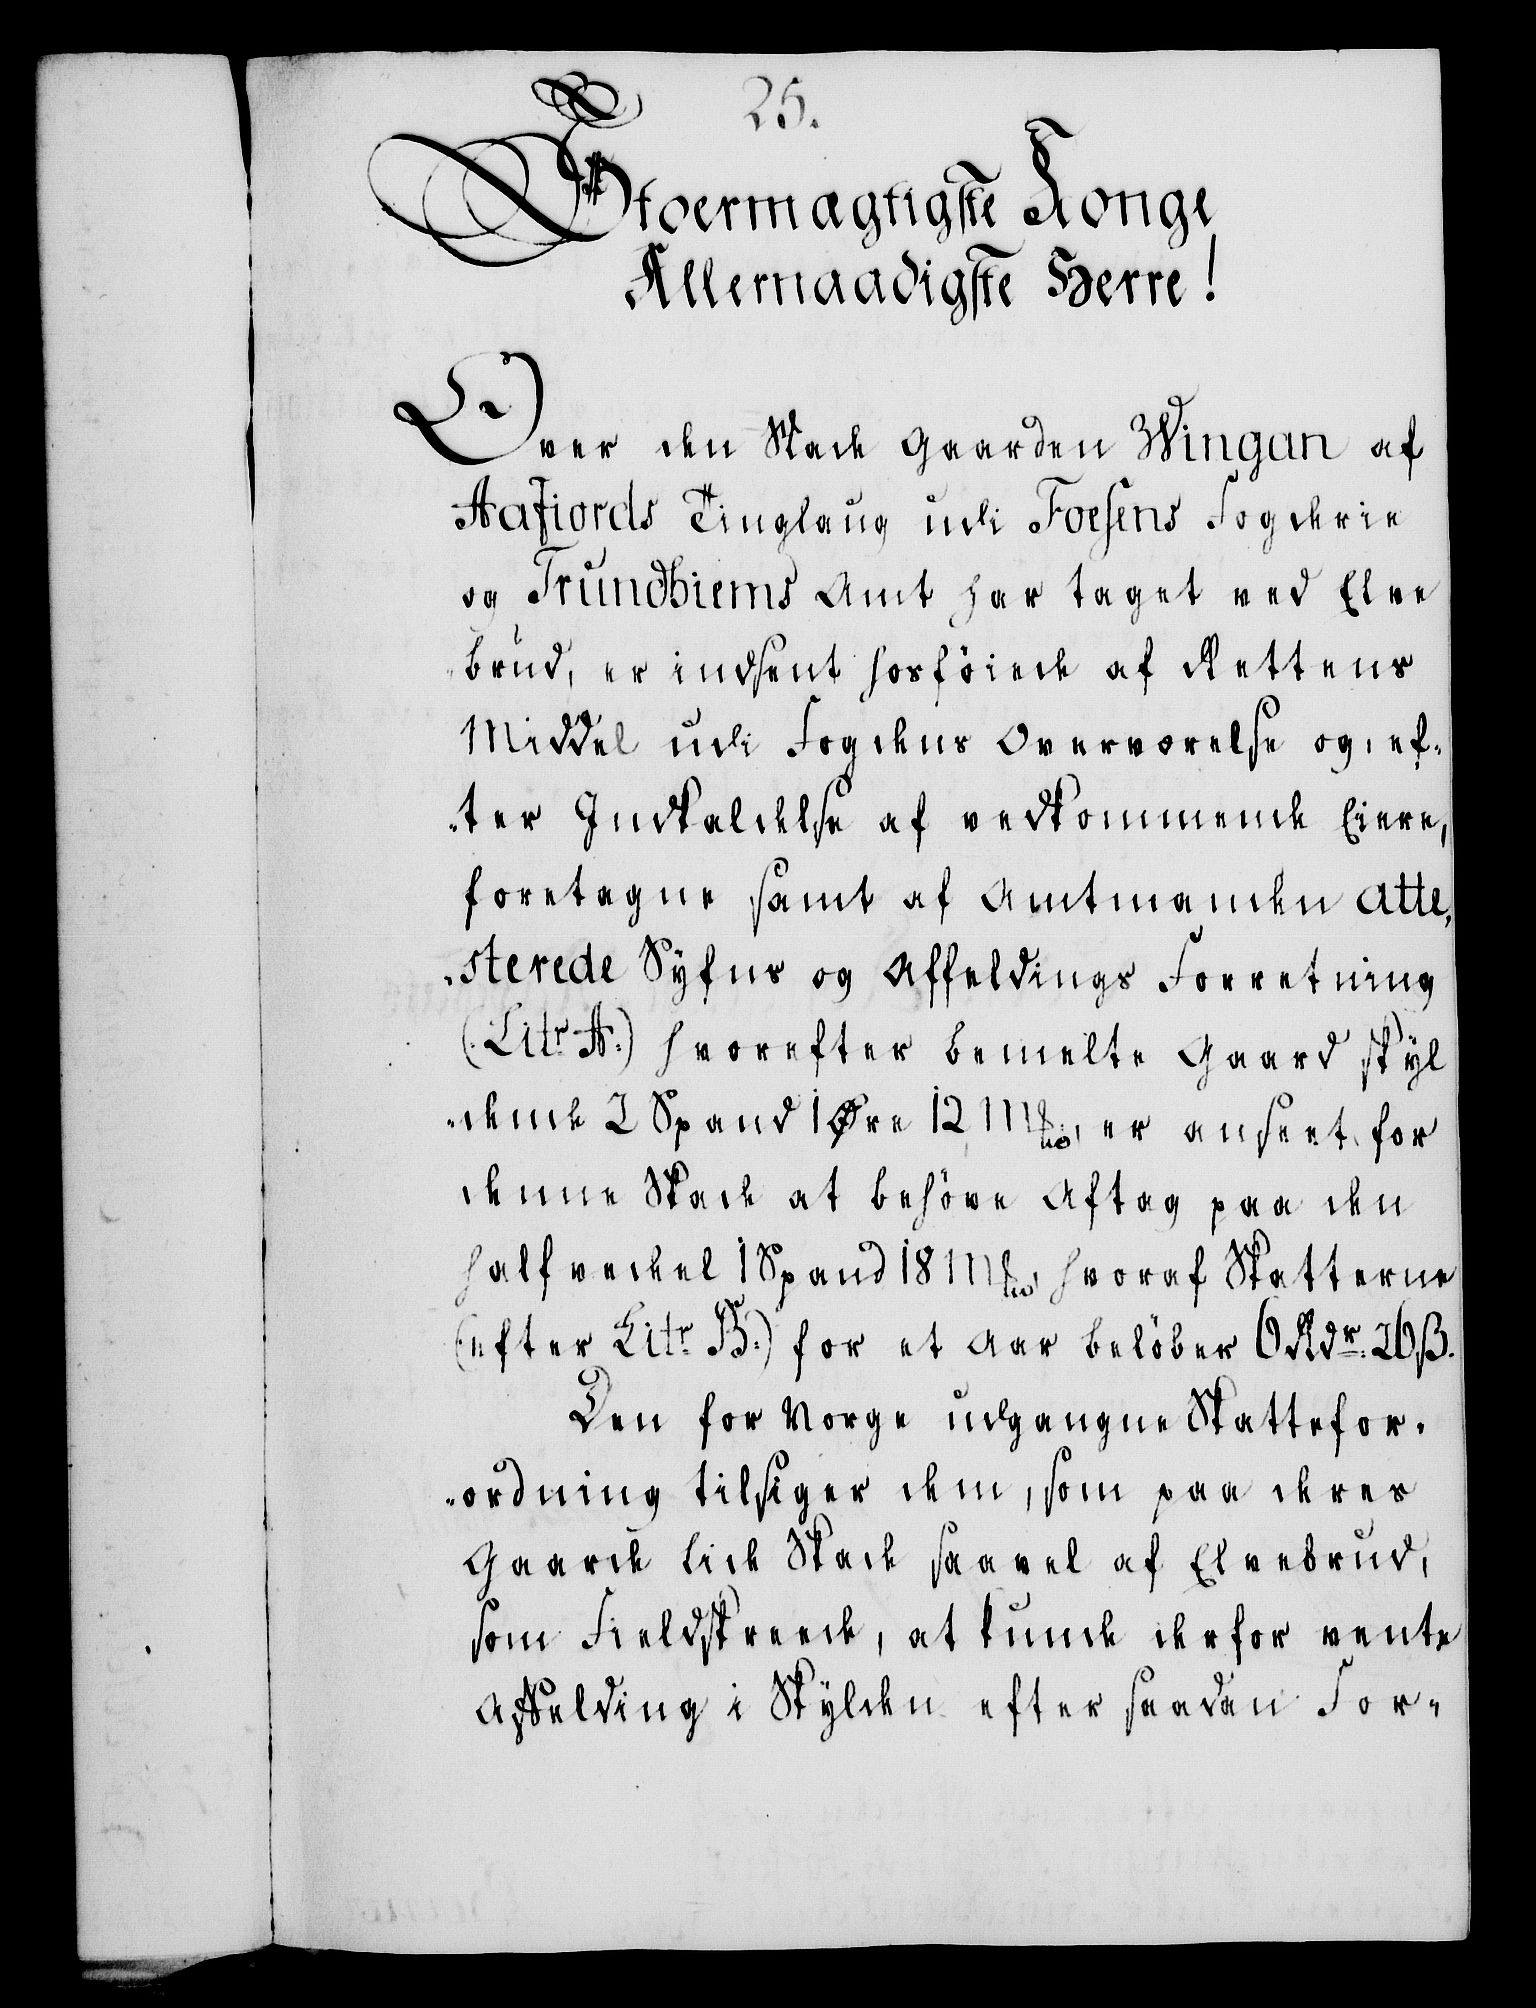 25.
Stoermægtigste Konge
Allernaadigste Herre!
Over den Skade Gaarden Wingan af
Aafiords Tinglaug udi Foesens Fogderie
og Trundhiems Amt har taget ved Elve
brud, er indsent hosföiede af Rettens
Middel udi Fogdens Overværelse og ef-
-ter Indkaldelse af vedkommende Eiere,
foretagne samt af Amtmanden atte-
-sterede Syfns og Affældings Forretning
(Litr. A.) hvorefter bemelte Gaard skyl
-dende 2 Spand 1 Øre 12 Mkl, er anseet for
denne Skade at behöve Aftag paa den
halfvedel 1 Spand 18 Mkl, hvoraf Skatterne
(efter Litr. B.) for et Aar belöber 6 Rdr. 26 ß.
Den for Norge udgangne Skattefor-
-ordning tilsiger dem, som paa deres
Gaarde lide Skade saavel af Elvebrud,
som Fieldskreede, at kunde derfor vente
Affelding i Skylden efter saadan For-